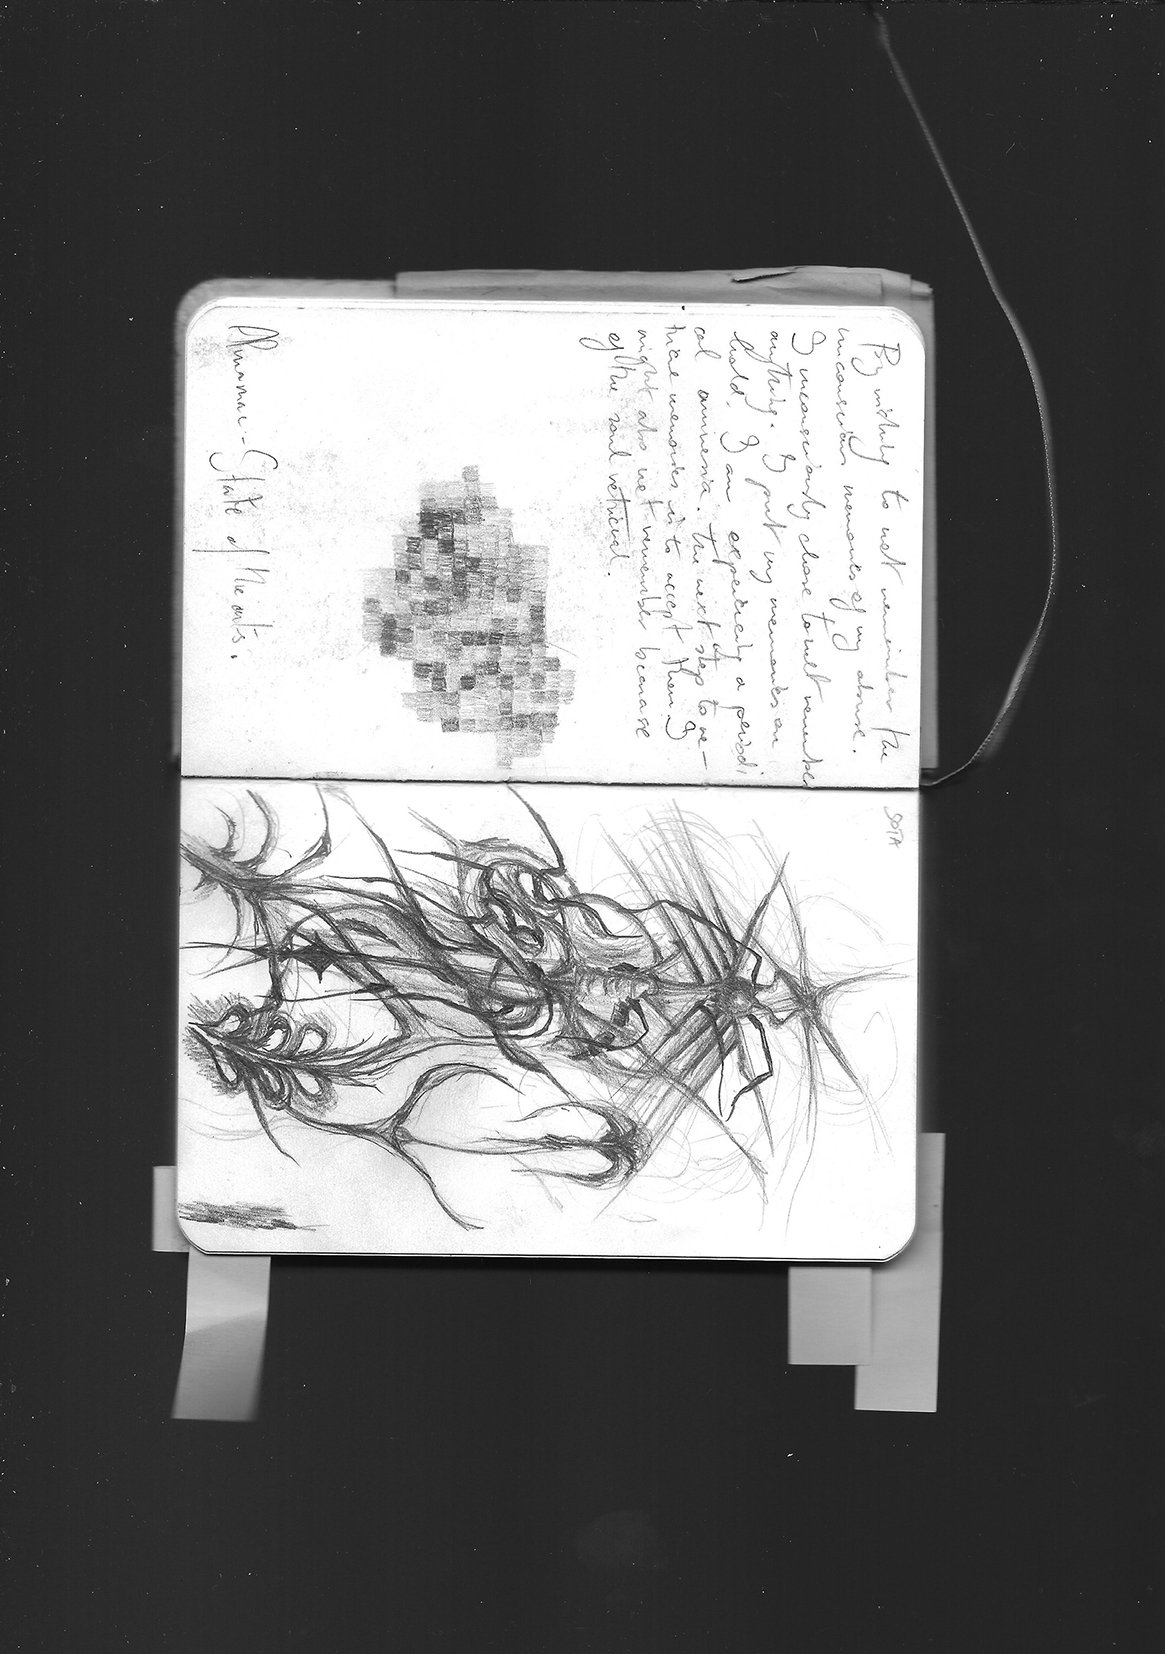 By wishing to not remember the
unconscious memories of my abuse.
I unconsciously chose to not remember
anything. I put my memories on
hold. I am experiencing a periodi
cal amnesia. The next step to re-
trieve memories is to accept them. I
might also not remember because
of the soul retrieval.
Almanac - State of the arts.
SOTA